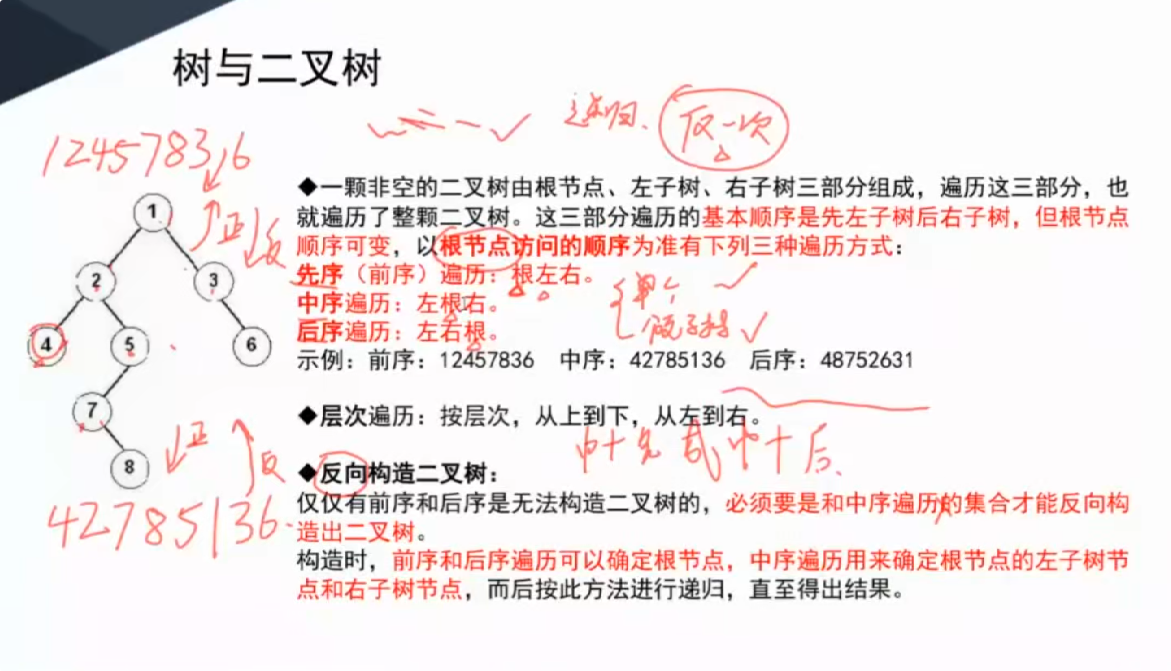 树与二叉树
递归、 反一次
12457836
◆一颗非空的二叉树由根节点、左子树、右子树三部分组成，遍历这三部分，也
就遍历了整颗二叉树。这三部分遍历的基本顺序是先左子树后右子树，但根节点
顺序可变，以根节点访问的顺序为准有下列三种遍历方式：
先序（前序）遍历：根左右。
中序遍历：左根右。
后序遍历：左右根。
示例：前序：12457836 中序：42785136 后序：48752631
◆层次遍历：按层次，从上到下，从左到右。
中+先 或 中+后、
◆反向构造二叉树：
仅仅有前序和后序是无法构造二叉树的，必须要是和中序遍历的集合才能反向构
造出二叉树。
构造时，前序和后序遍历可以确定根节点，中序遍历用来确定根节点的左子树节
点和右子树节点，而后按此方法进行递归，直至得出结果。
1
正 反
2 3
4 5 6
7
正 反
8
42785136